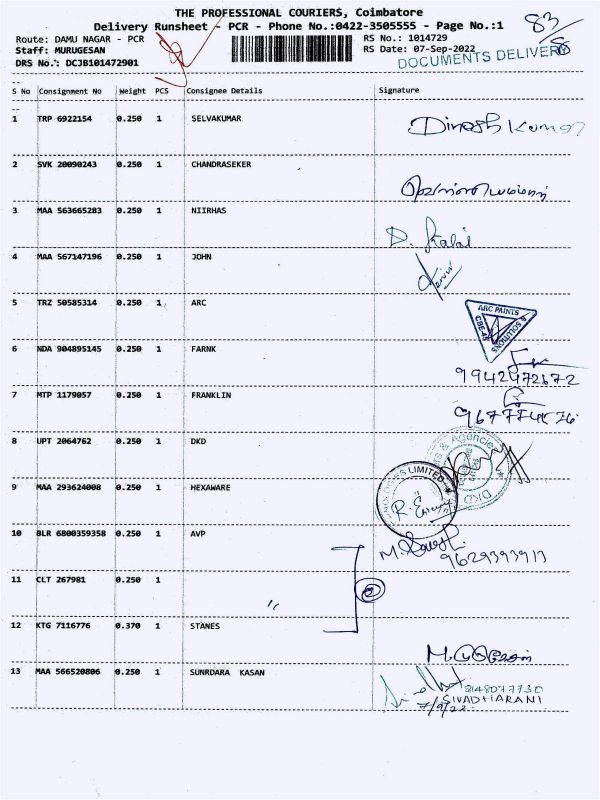 THE PROFESSIONAL COURIERS, Coimbatore
Delivery Runsheet - PCR - Phone No.:0422-3505555 - Page No.:1
83/
Route: DAMU NAGAR - PCR
RS No.: 1014729
Staff: MURUGESAN
RS Date: 07-Sep-2022
DRS No.: DCJB101472901
DOCUMENTS DELIVERE
S No Consignment No Weight PCS Consignee Details Signature
1 TRP 6922154 0.250 1 SELVAKUMAR Dinesh Kumar
2 SVK 20090243 0.250 1 CHANDRASEKER
3 MAA 563665283 0.250 1 NIIRHAS D. Kalai
4 MAA 567147196 0.250 1 JOHN
5 TRZ 50585314 0.250 1 ARC
ARC PAINTS & SOLUTIONS
6 NDA 904895145 0.250 1 FARNK
9942472672
7 MTP 1179057 0.250 1 FRANKLIN
8 UPT 2064762 0.250 1 DKD
& Agencies
DKD
9 MAA 293624008 0.250 1 HEXAWARE
LIMITED
10 BLR 6800359358 0.250 1 AVP
9629393913
11 CLT 267981 0.250 1 "
2
12 KTG 7116776 0.370 1 STANES
13 MAA 566520806 0.250 1 SUNRDARA KASAN
8148077730
SIVADHARANI
7/9/22